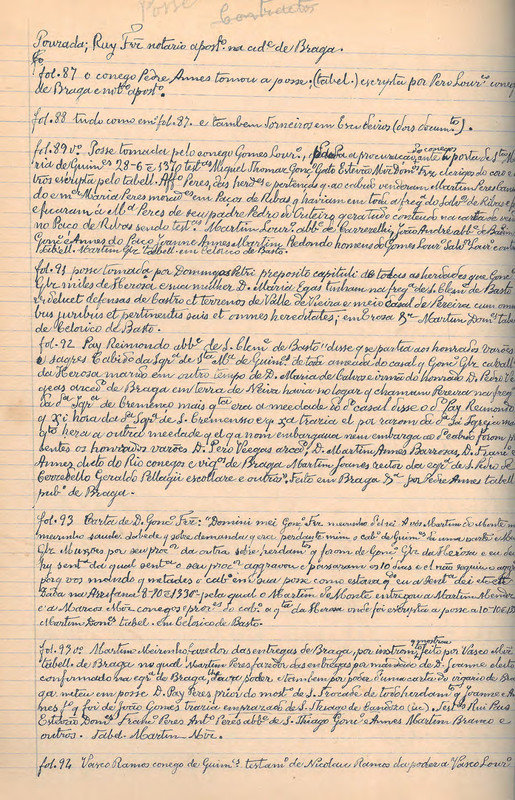 Posse
Contractos
Pourada; Ruy Frz notario apostº na cidᵉ de Braga.
fol. 87 o conego Pedre Annes tomou a posse; (tabel.) escripta por Pero Lourº coneg
de Braga e notº apostº.
fol. 88 tudo como em fol. 87. e tambem Torneiros em Escudeiros (dois documtos).
fol. 89 vº Posse tomada pelo conego Gomes Lourº, a procuração ante a porta de Sta Ma
ria de Guimes 28-6 e 1370 testas Miguel Thomar Gonç. Goto Estevão Mir Domos Frz clerigos do coro e
tros escripta pelo tabell. Affº Peres, das herdes e pertenças q ao cabido venderam Martim Peres
do e mer Maria Peres moradores em Paços de Ribas q haviam em toda a fregª do Salvor de Ribas e
e ficaram a Mª Peres de seu padre Pedro Outeiro
no Paço de Ribas sendo testas Martim Lourº abbe de Carvezelhi, João André abbe de
Gonç. e Annes do Paço Joanne Annes Martim Redondo homens de Gomes Lourº Salvor Lourº
Tabell. Martim Glz tabell. em Celorico de Basto.
fol. 91 posse tomada por Domingos Petri preposito capituli de todas as herdades que Gonç.
Glz miles de Herosa e sua mulher D. Maria Egas tinham na fregª de S. Clemte de Basto
videlicet defensas de Castro et terrenos de Valle de Vieira e meio casal de Pereira cum omni
bus juribus et pertinentiis suis et omnes hereditates; em Erosa &ª Martim Domos tabell.
de Celorico de Basto.
fol. 92 Pay Reimondo abbe de S. Clemte de Basto "disse q se partia aos honrados varões
e sagres Cabido da Egrª de Sta Mª de Guimes de toda ameadade do casal q Gonç. Glz cavalleiro
da Herosa marido em outro tempo de D. Maria de Calvos e irmão do honrado D. Pero Ve
egas arcedº de Braga em terra de Neiva havia no logar q chamam Pereira na freg.
da dª Egrª de Cremenço mais qto era a meedade do dº casal disse o dº Pay Reimondo
q xi hora da dª Egrª de S. Cremenso er q xa traria el por razom da dª sa Egreja
qto hera a outra meedade q el ga nom embargava nem embarga ao dº cabido foram pre
sentes os honrados varões D. Pero Veegas arced., D. Martim Annes Barrosas, D. Franco
Annes dicto do Rio conegos e vigº de Braga Martim Joannes reitor da egrª de S. Pedro de
Torrebello Geraldo Pellagii escollare e outros. Feito em Braga &ª por Pedre Annes tabell
pubº de Braga.
fol. 93 Carta de D. Gonç. Frz: "Domini mei Gonç. Frz meirinho d'el rei. A vós Martim do Monte m
meirinho saude. sabede q sobre demanda q era perdante mim o cabº de Guimes de uma parte e
Glz Muzzos por seu procor da outra sobre herdamtos q foram de Gonç. Glz da Herosa e eu dei
hy sentª da qual sentª o seu procor aggravou e passaram os 10 dias e el não seguiu o aggravo
porq vos mando q metades o cabº em sua posse como estava
Taba na Azesana 8-10 e 1330 pela qual o Martim do Monte entregou a Martim Mendes
e a Marcos Mor conegos e procores do cabº a qta da Herosa onde foi escripta a posse a 10-10
Martim Domos tabell. em Celorico de Basto.
fol. 93 vº Martim Meirinho favedor das entregas de Braga, por instromto q mostrou feito por Vasco
tabell. de Braga no qual Martim Peres favedor das entregas por mandado de D. Joanne eleito
confirmado na egrª de Braga, lhe dava poder e tambem por poder d'uma carta do vigario de Braga
meteu em posse D. Pay Peres prior do mostº de S. Torcade de todo herdamto q Joanne An
nes fº q foi de João Gomes trazia emprazado de S. Thiago de Candozo (sic). Testas Rui Paes
Estevão Domos Frahº Peres Antº Peres abbe de S. Thiago Gonç. e Annes Martim Branco e
outros. Tabel. Martim Mir.
fol. 94 Vasco Ramos conego de Guimes testamº de Nicolau Ramos da poder a Vasco Lourº